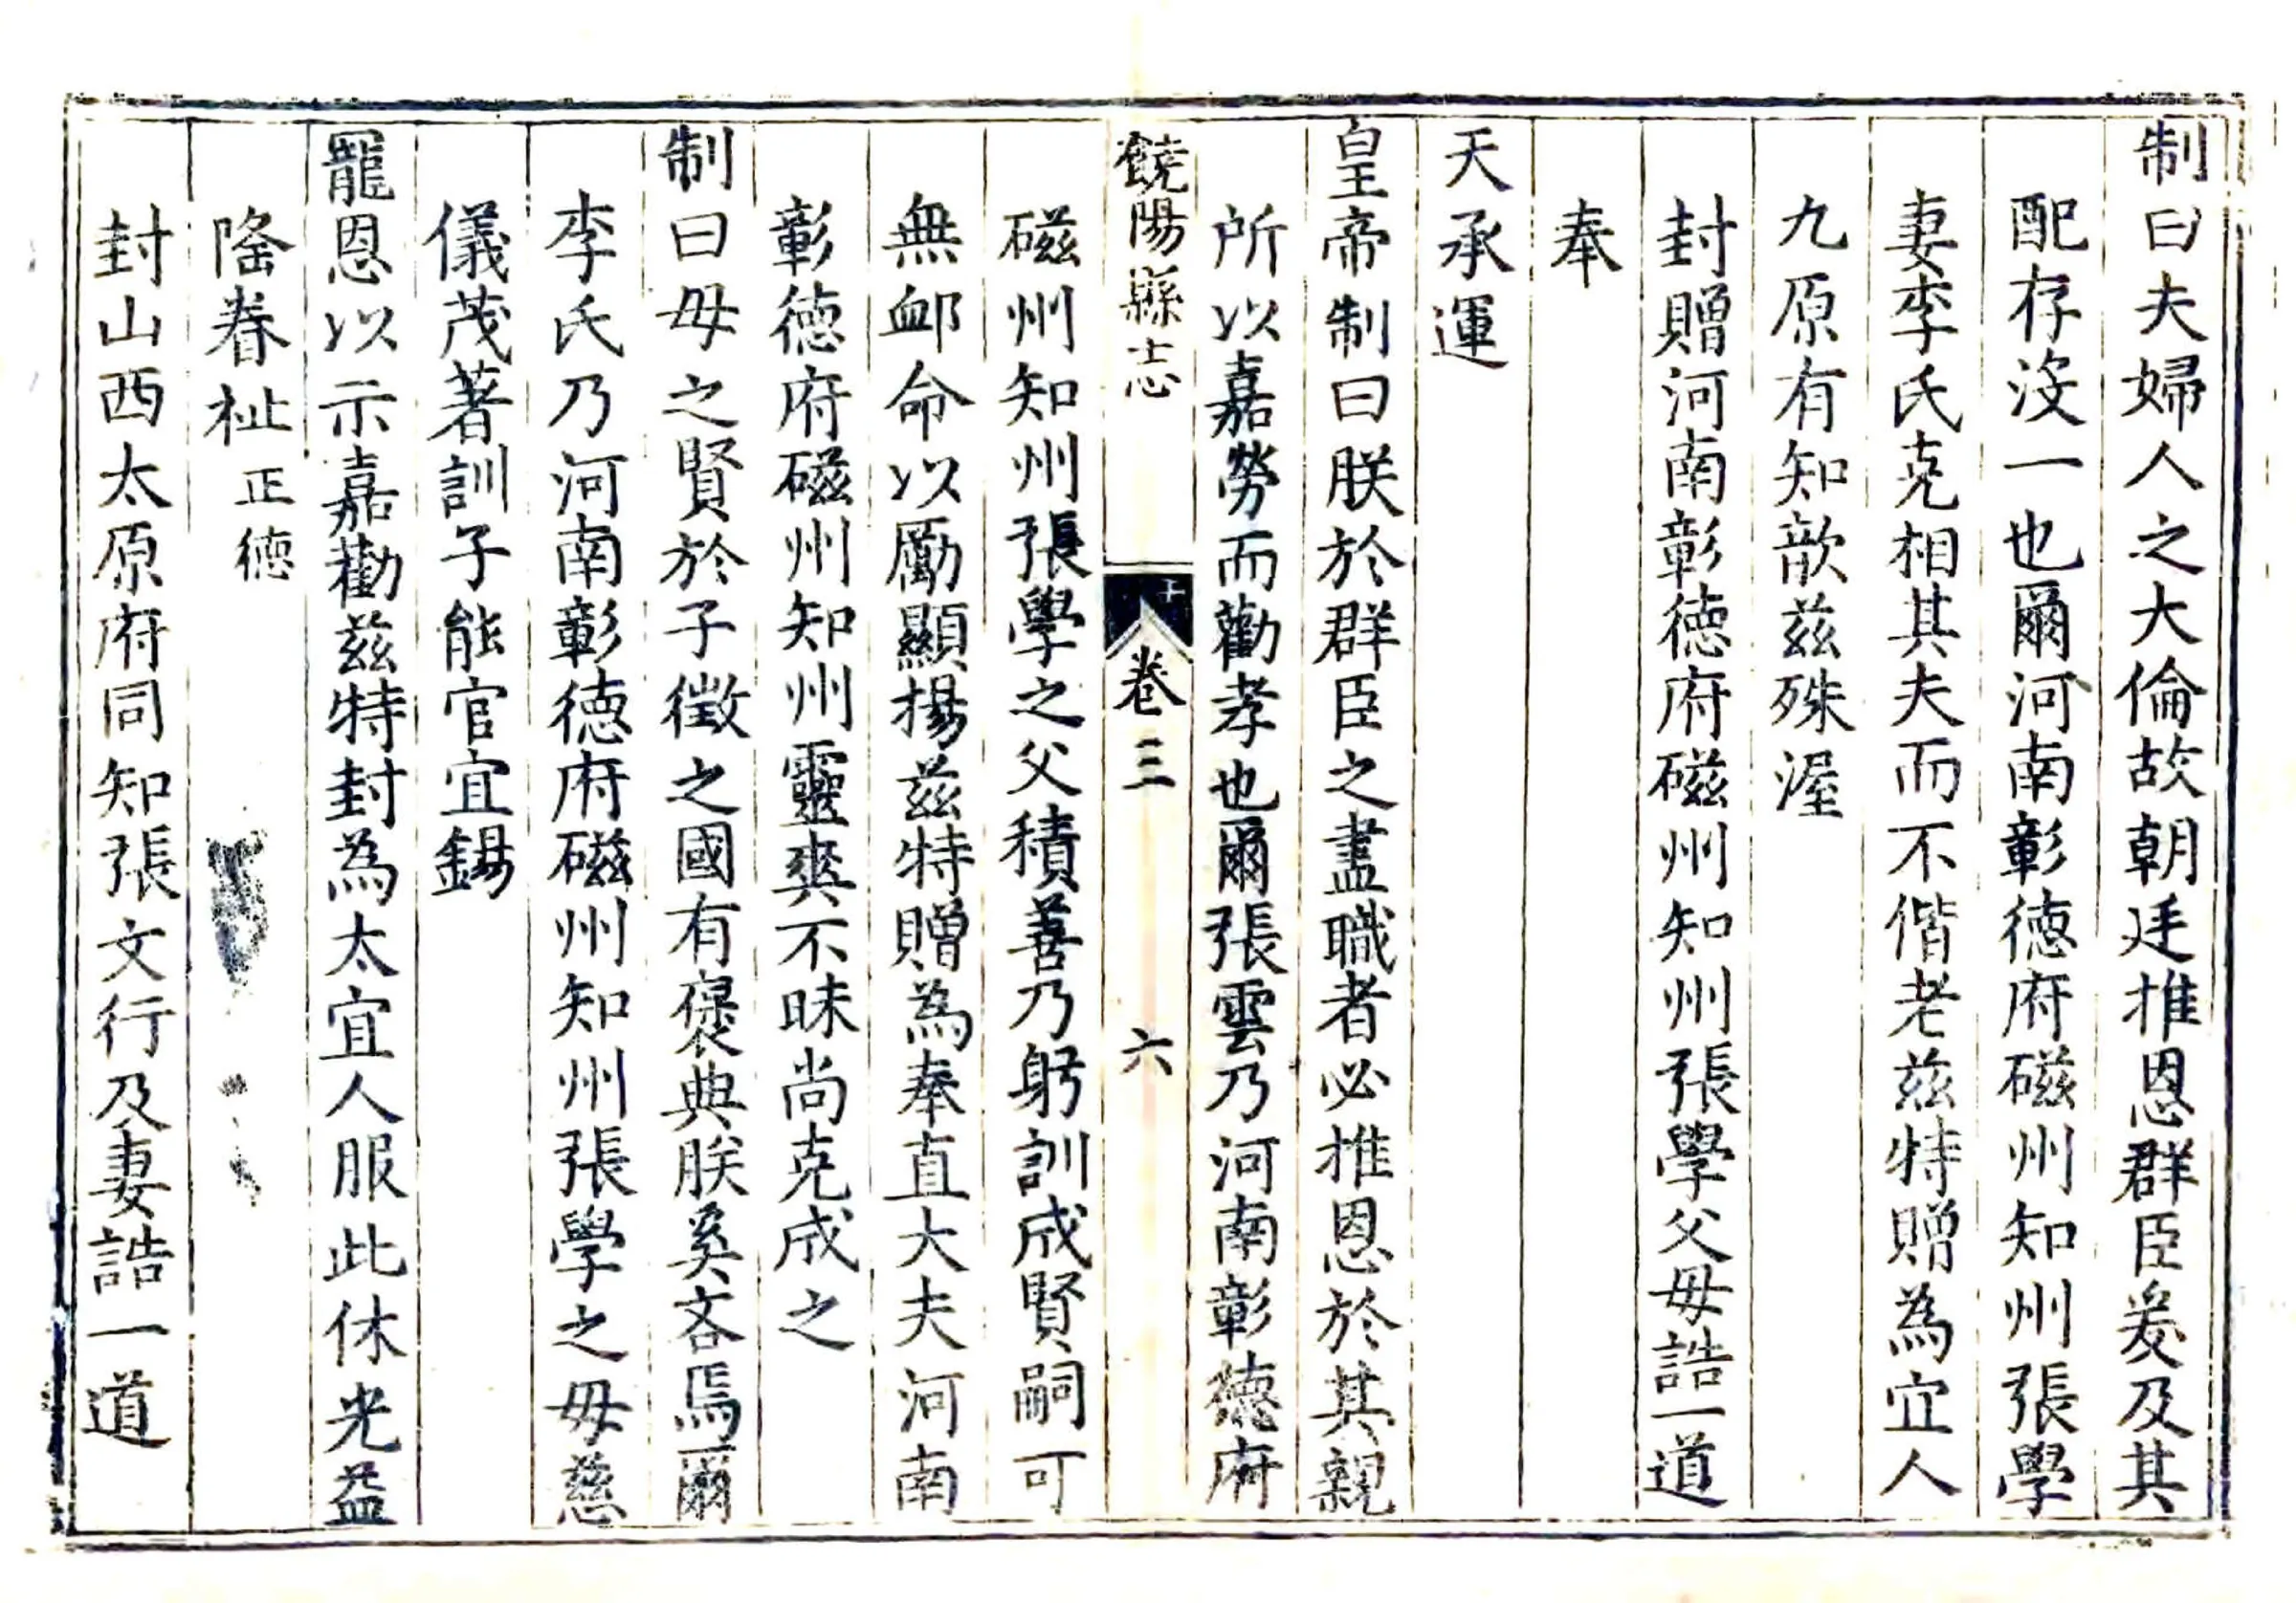 制曰夫婦人之大倫故朝廷推恩群臣爰及其
配存没一也爾河南彰德府磁州知州張學
妻李氏克相其夫而不偕老兹特贈為宜人
九原有知歆兹殊渥
封贈河南彰德府磁州知州張學父母誥一道
奉
天承運
皇帝制曰朕於群臣之盡職者必推恩於其親
所以嘉勞而勸孝也爾張雲乃河南彰德府
饒陽縣志 卷三 六
磁州知州張學之父積善乃躬訓成賢嗣可
無䘏命以勵顯揚兹特贈為奉直大夫河南
彰德府磁州知州靈爽不昧尚克成之
制曰母之賢於子徵之國有褒典朕奚吝焉爾
李氏乃河南彰德府磁州知州張學之母慈
儀茂著訓子能官宜錫
寵恩以示嘉勸兹特封為太宜人服此休光益
隆眷祉 正德
封山西太原府同知張文行及妻誥一道